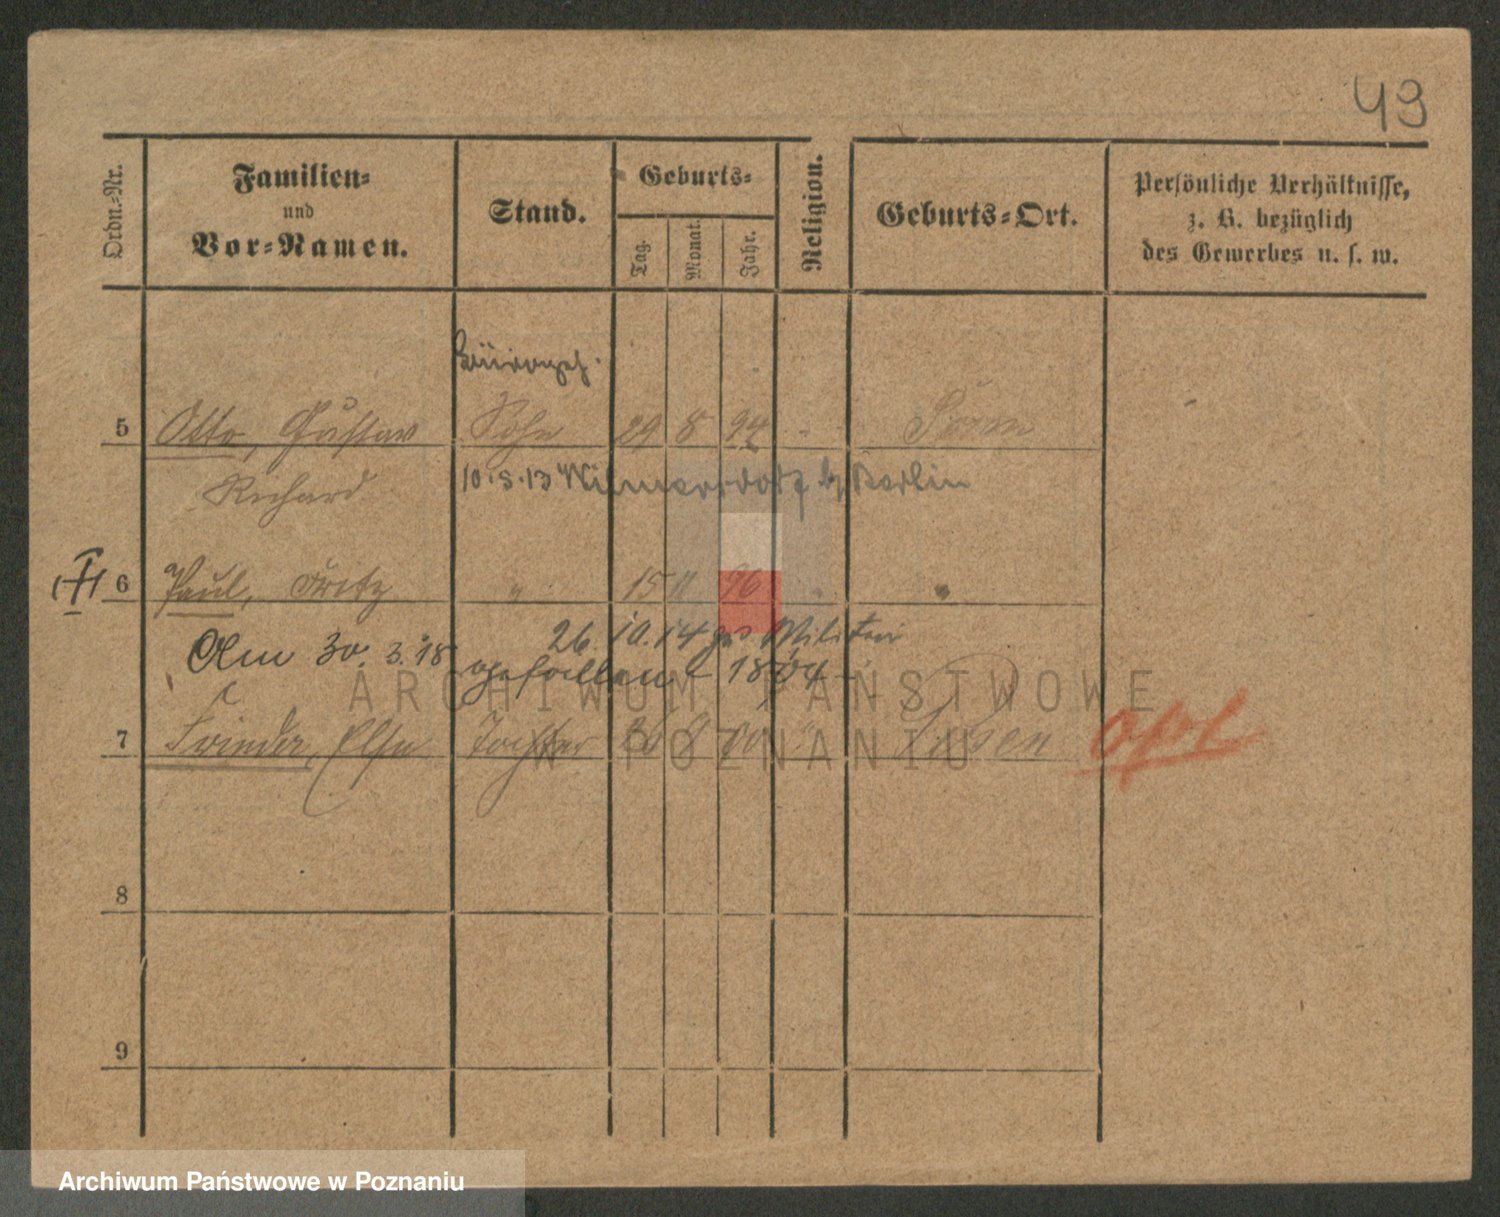 49
Ordn.-Nr.
Familien-
und
Vor-Namen.
Stand.
Geburts-
Tag.
Monat.
Jahr.
Religion.
Geburts-Ort.
Persönliche Verhältnisse,
z. B. bezüglich
des Gewerbes u. s. w.
Bürogeh.
5 Otto, Gustav Sohn 29 8 94
Richard 10.3.13 Wilmersdorf b/ Berlin
6 Paul, Fritz " 15 11 96 " "
26.10.14 Militär
Am 30.3.18 gefallen 1804
7 Frieda, Else Tochter 26 8 00 " Posen
8
9
ARCHIWUM PAŃSTWOWE
W POZNANIU
Archiwum Państwowe w Poznaniu